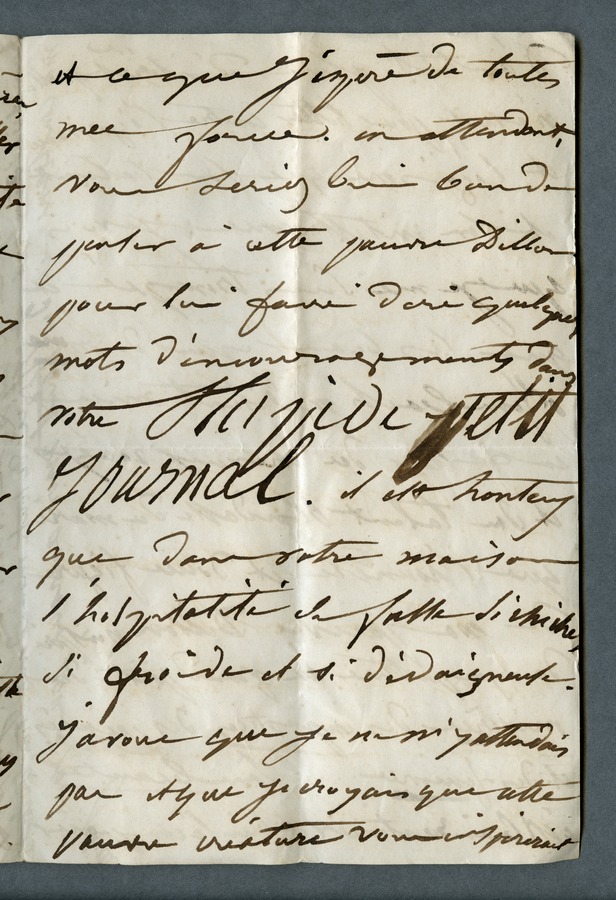 et ce que j'espère de toutes
mes forces. en attendant,
vous seriez bien bon de
parler à cette pauvre Dillon
pour lui faire dire quelques
mots d'encouragements dans
votre Stupide petit
Journal. il est honteux
que dans votre maison
l'hospitalité se fasse si chiche,
si froide et si dédaigneuse.
j'avoue que je ne m'y attendais
pas et que je croyais que cette
pauvre créature vous inspirerait